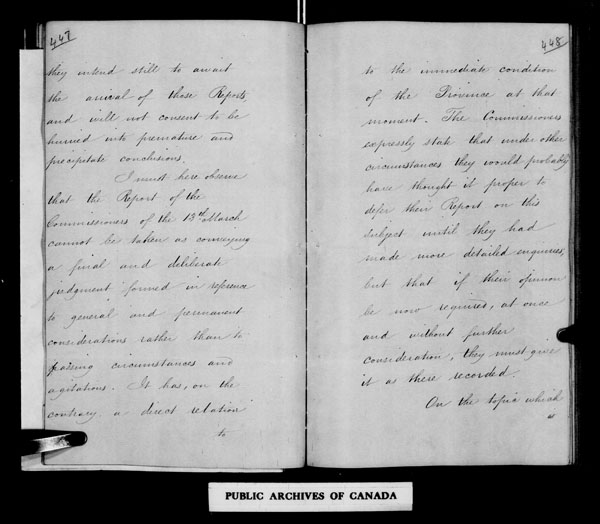 447
they intend still to await
the arrival of those Reports,
and will not consent to be
hurried into premature and
precipitate conclusions.
I must here observe
that the Report of the
Commissioners of the 13th March
cannot be taken as conveying
a final and deliberate
judgment formed in reference
to general and permanent
considerations rather than to
passing circumstances and
agitations. It has, on the
contrary, a direct relation
to
448
to the immediate condition
of the Province at that
moment. The Commissioners
expressly state that under other
circumstances they would probably
have thought it proper to
defer their Report on this
subject until they had
made more detailed enquiries,
but that if their opinion
be now required, at once
and without further
consideration, they must give
it as there recorded.
On the topic which
PUBLIC ARCHIVES OF CANADA